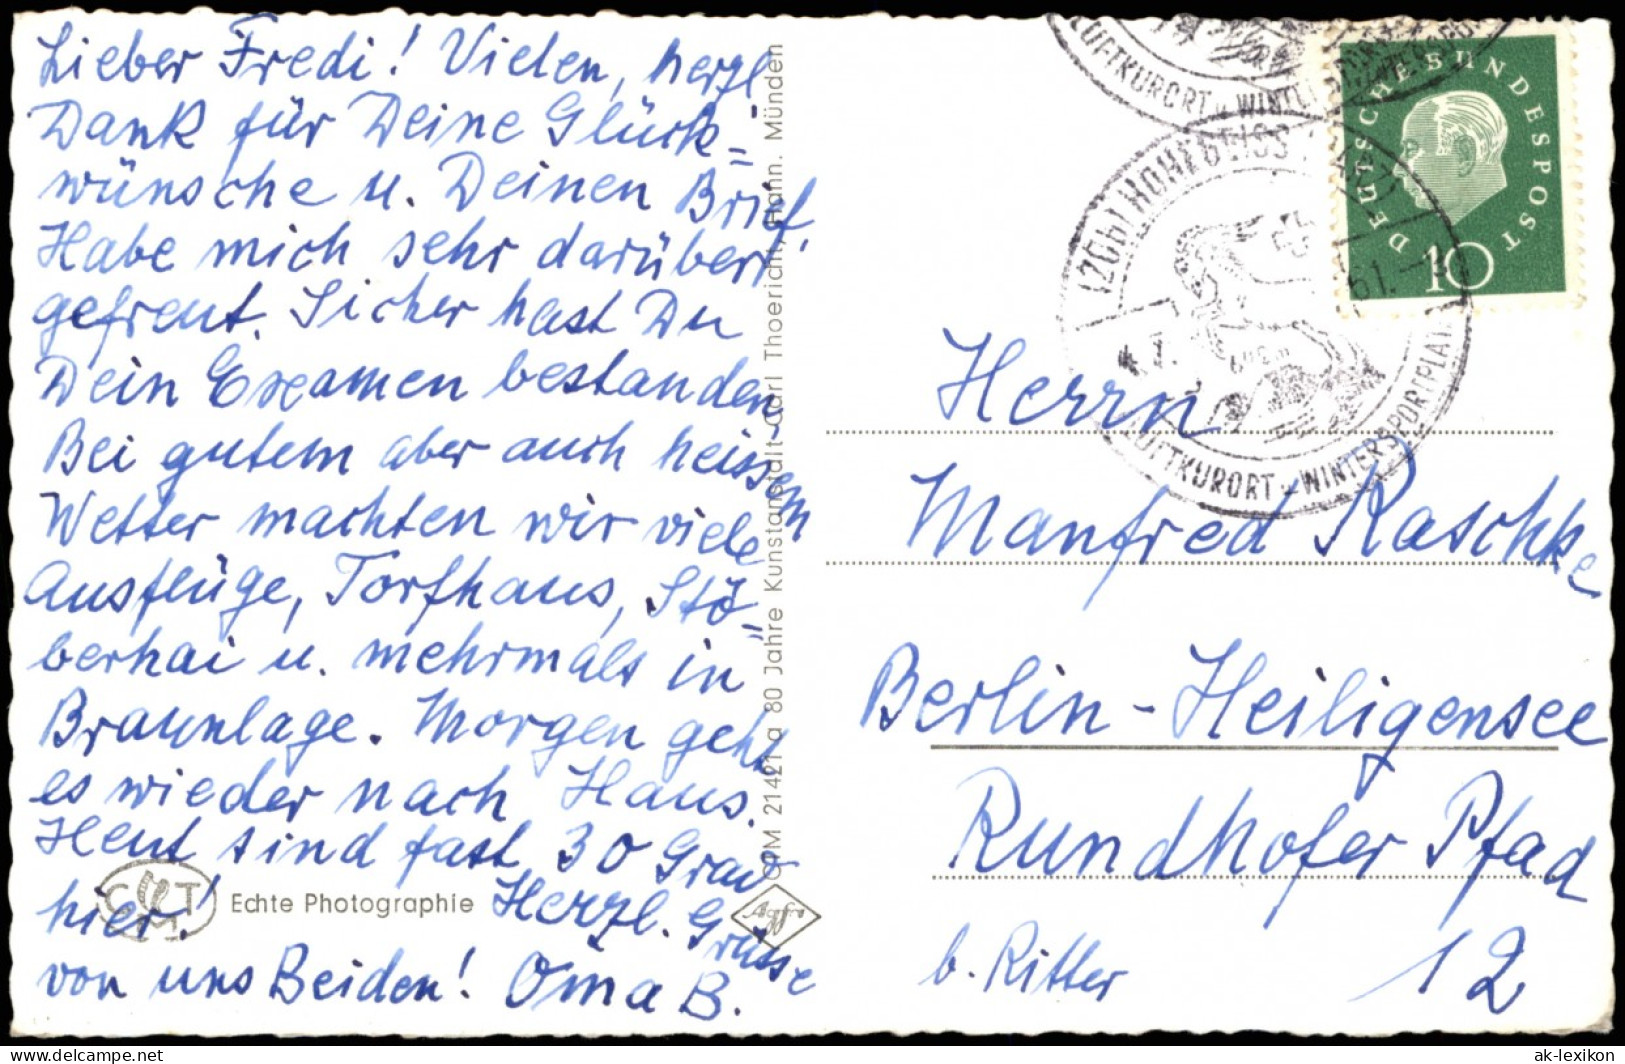 Lieber Fredi! Vielen, herzl.
Dank für Deine Glück-
wünsche u. Deinen Brief,
Habe mich sehr darüber
gefreut. Sicher hast Du
Dein Examen bestanden
Bei gutem aber auch heissem
Wetter machten wir viele
Ausflüge, Torfhaus, Stö-
berhai u. mehrmals in
Braunlage. Morgen geht
es wieder nach Haus.
Heut sind fast 30 Grad
hier! Herzl. Grüsse
von uns Beiden! Oma B.
Echte Photographie
Agfa
CPM 21421 a 80 Jahre Kunstanstalt Carl Thoericht, Hann. Münden
LUFTKURORT u. WINTER
(20b) HOHEGEISS
61.
LUFTKURORT u. WINTERSPORTPLATZ
DEUTSCHE BUNDESPOST
10
Herrn
Manfred Raschke
Berlin-Heiligensee
Rundhofer Pfad
b. Ritter 12
ak-lexikon